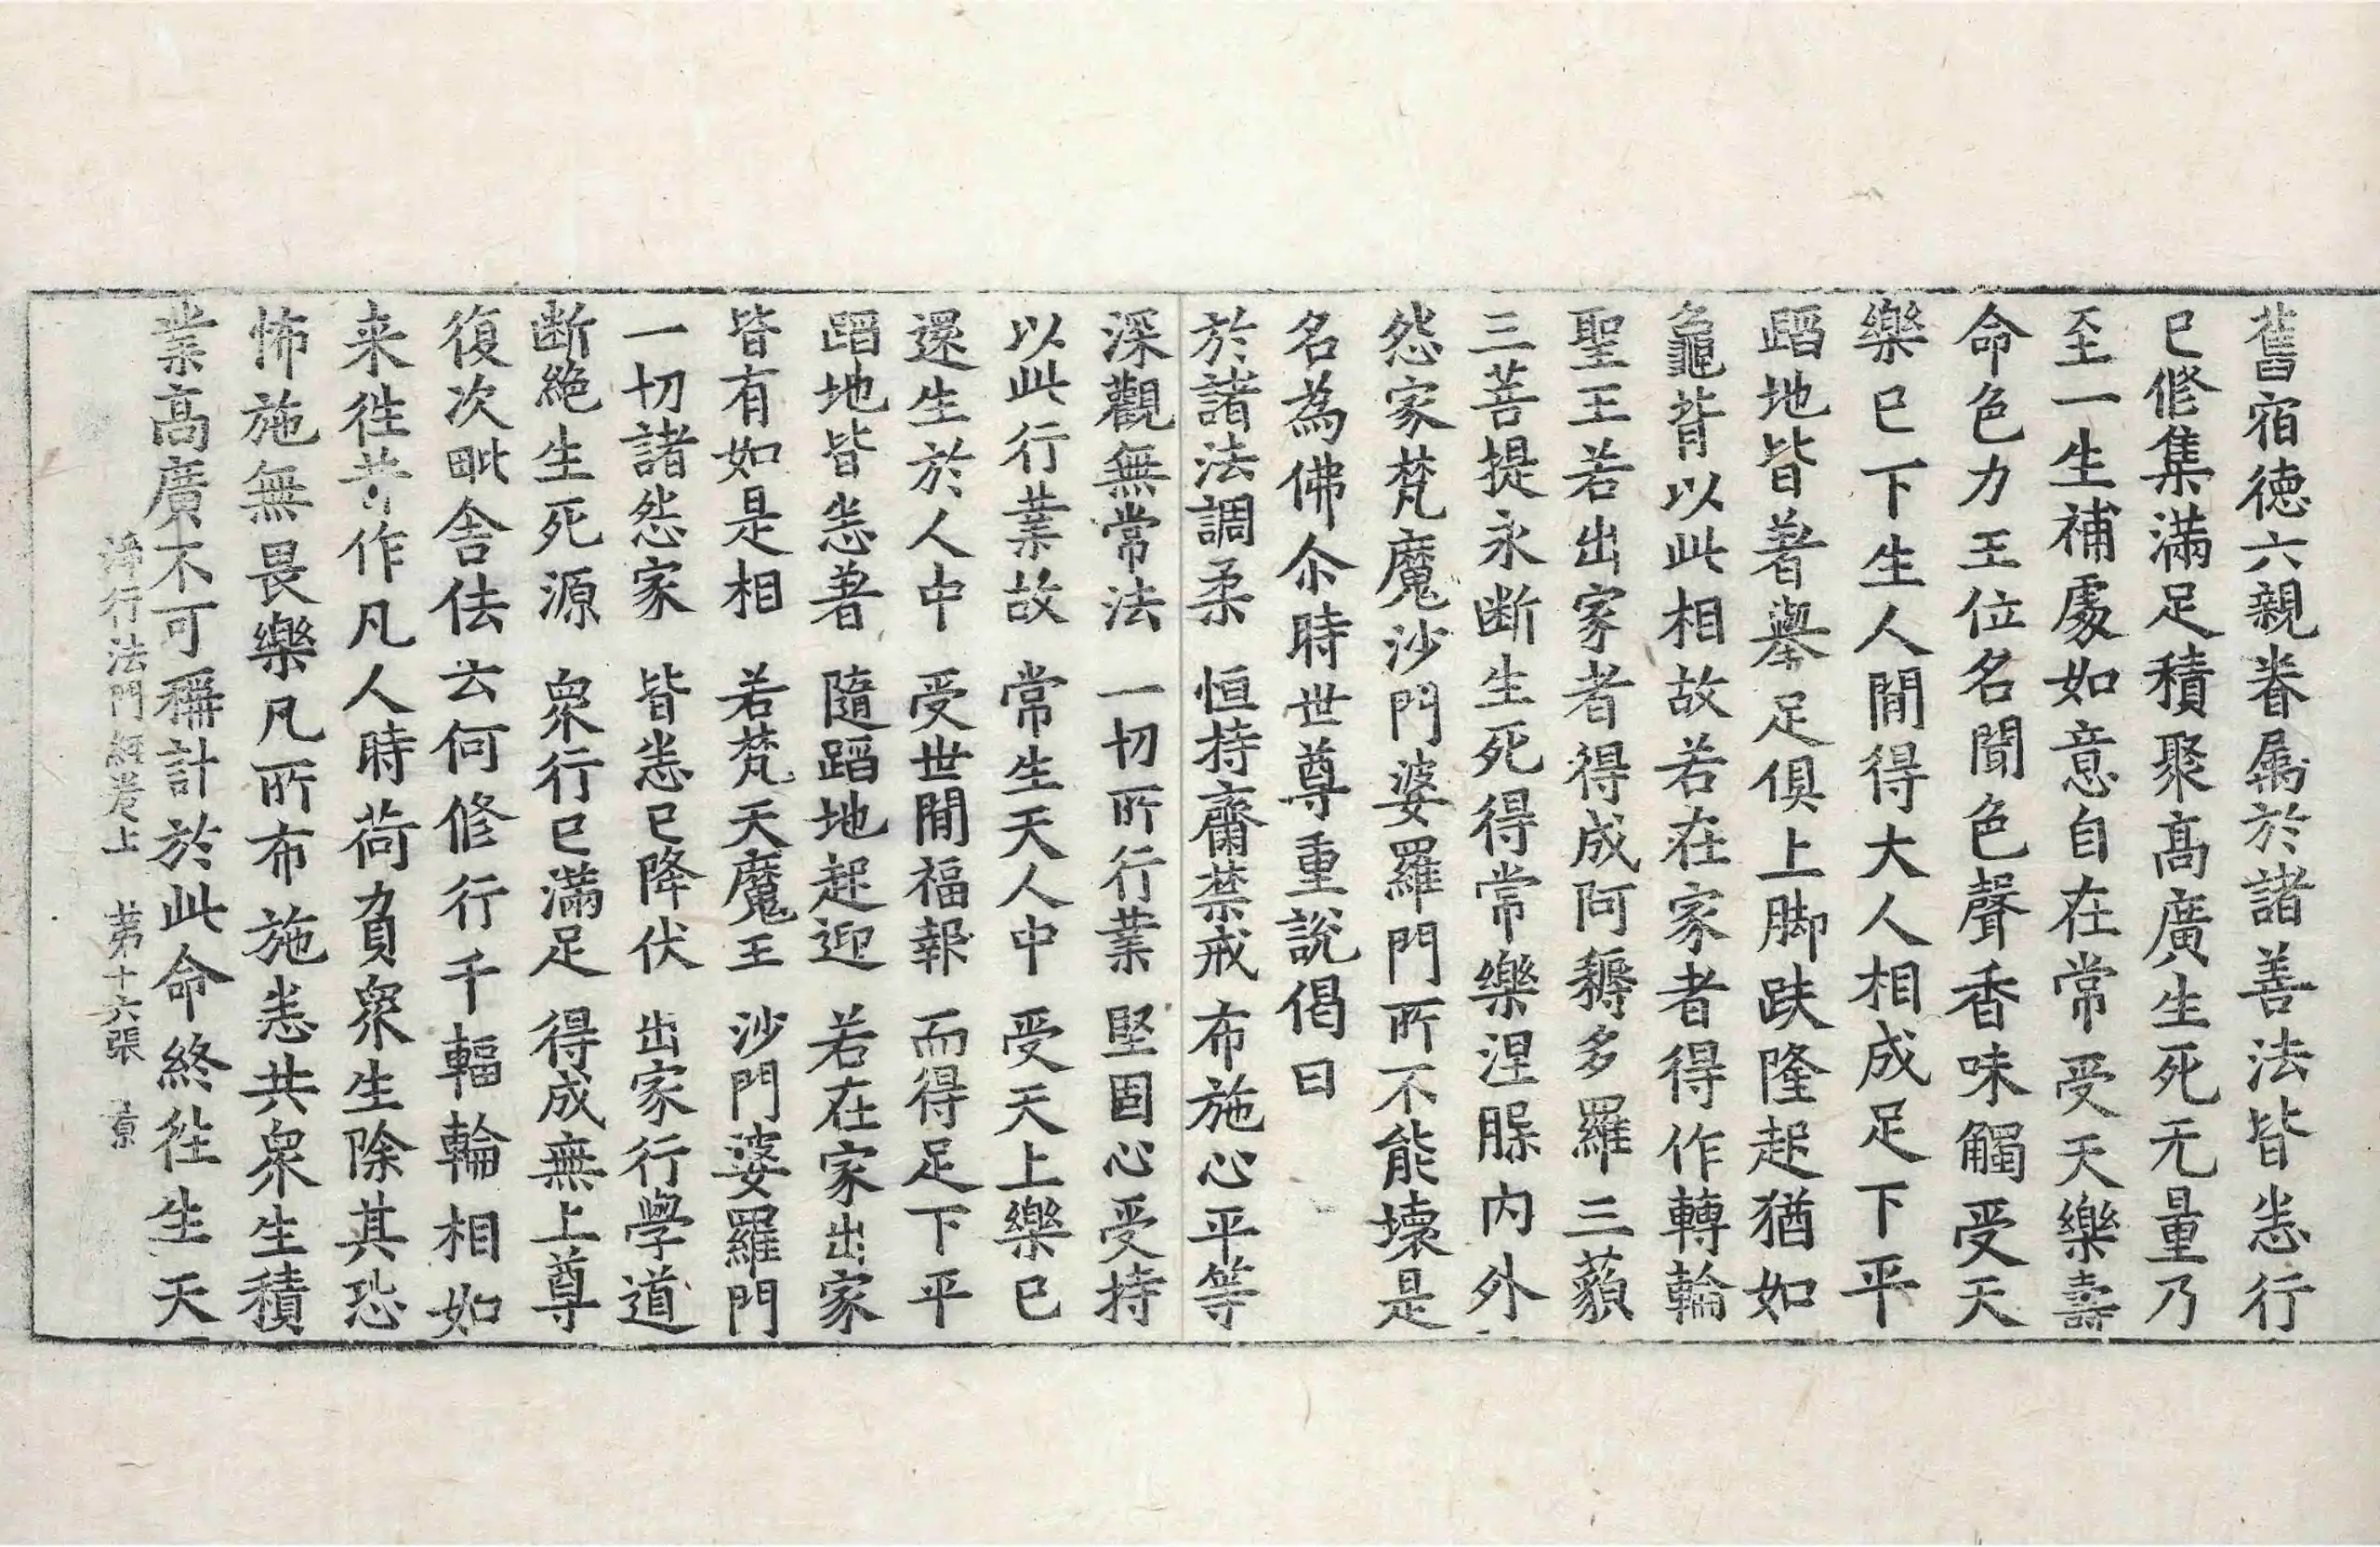 舊宿徳六親眷属於諸善法皆㤙行
已修集滿足積聚髙廣生死无量乃
至一生補處如意自在常受天樂壽
命色力王位名聞色聲香味觸受天
樂已下生人間得大人相成足下平
蹈地皆著舉足俱上脚趺隆起猶如
龜背以此相故若在家者得作轉輪
聖王若出家者得成阿耨多羅三藐
三菩提永断生死得常樂涅槃内外
怨家梵魔沙門婆羅門所不能壊是
名為佛尒時世尊重說偈曰
於諸法調柔　恒持齋禁戒　布施心平等
深觀無常法　一切所行業　堅固心受持
以此行業故　常生天人中　受天上樂已
還生於人中　受世間福報　而得足下平
蹈地皆悉著　隨蹈地起迎　若在家出家
皆有如是相　若梵天魔王　沙門婆羅門
一切諸怨家　皆悉已降伏　出家行學道
断絶生死源　衆行已滿足　得成無上尊
復次毗舎佉云何修行千輻輪相如
来徃昔作凡人時荷負衆生除其恐
怖施無畏樂凡所布施悉共衆生積
業髙廣不可稱計於此命終徃生天
淨行法門經卷上　苐十六張　景